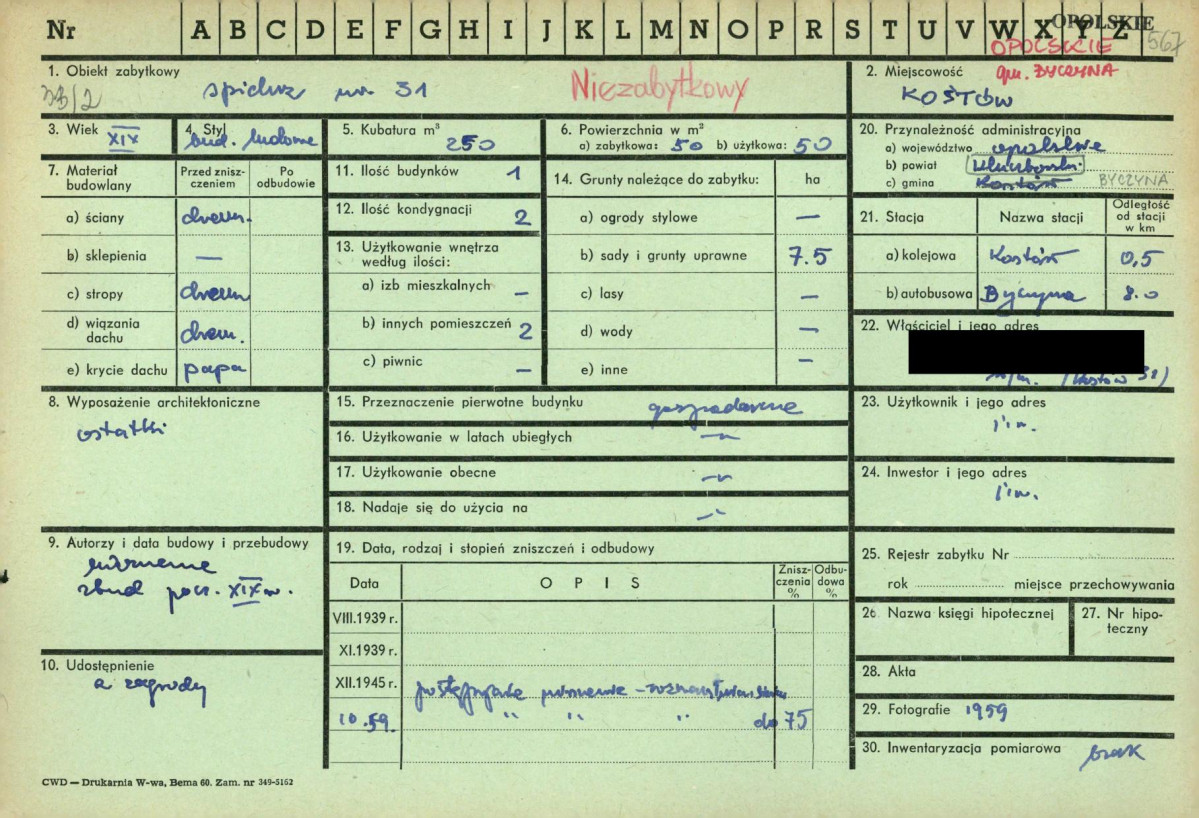 Nr A B C D E F G H I J K L M N O P R S T U V W X Y Z
OPOLSKIE
567
OPOLSKIE
gm. BYCZYNA
1. Obiekt zabytkowy
spichrz nr 31
Niezabytkowy
2. Miejscowość
KOSTÓW
3. Wiek XIX
4. Styl bud. ludowe
5. Kubatura m³
250
6. Powierzchnia w m²
a) zabytkowa: 50 b) użytkowa: 50
7. Materiał budowlany
Przed znisz-
czeniem
Po
odbudowie
a) ściany drewn.
b) sklepienia —
c) stropy drewn
d) wiązania
dachu drewn.
e) krycie dachu papa
8. Wyposażenie architektoniczne
ostatki
9. Autorzy i data budowy i przebudowy
zbud pocz. XIX w.
10. Udostępnienie
a zagrody
11. Ilość budynków 1
12. Ilość kondygnacji 2
13. Użytkowanie wnętrza
według ilości:
a) izb mieszkalnych —
b) innych pomieszczeń 2
c) piwnic —
14. Grunty należące do zabytku: ha
a) ogrody stylowe —
b) sady i grunty uprawne 7.5
c) lasy —
d) wody —
e) inne —
15. Przeznaczenie pierwotne budynku gospodarcze
16. Użytkowanie w latach ubiegłych —„—
17. Użytkowanie obecne —„—
18. Nadaje się do użycia na —„—
19. Data, rodzaj i stopień zniszczeń i odbudowy
Data
OPIS
Znisz-
czenia
%
Odbu-
dowa
%
VIII.1939 r.
XI.1939 r.
XII.1945 r.
10.59. „ „ „ do 75
20. Przynależność administracyjna
a) województwo opolskie
b) powiat Kluczborski
c) gmina Kostów BYCZYNA
21. Stacja
Nazwa stacji
Odległość
od stacji
w km
a) kolejowa Kostów 0,5
b) autobusowa Byczyna 8.0
22. Właściciel i jego adres
w/m. (Kostów 31)
23. Użytkownik i jego adres
j.w.
24. Inwestor i jego adres
j.w.
25. Rejestr zabytku Nr
rok miejsce przechowywania
26. Nazwa księgi hipotecznej
27. Nr hipo-
teczny
28. Akta
29. Fotografie 1959
30. Inwentaryzacja pomiarowa brak
CWD — Drukarnia W-wa, Bema 60. Zam. nr 349-5162